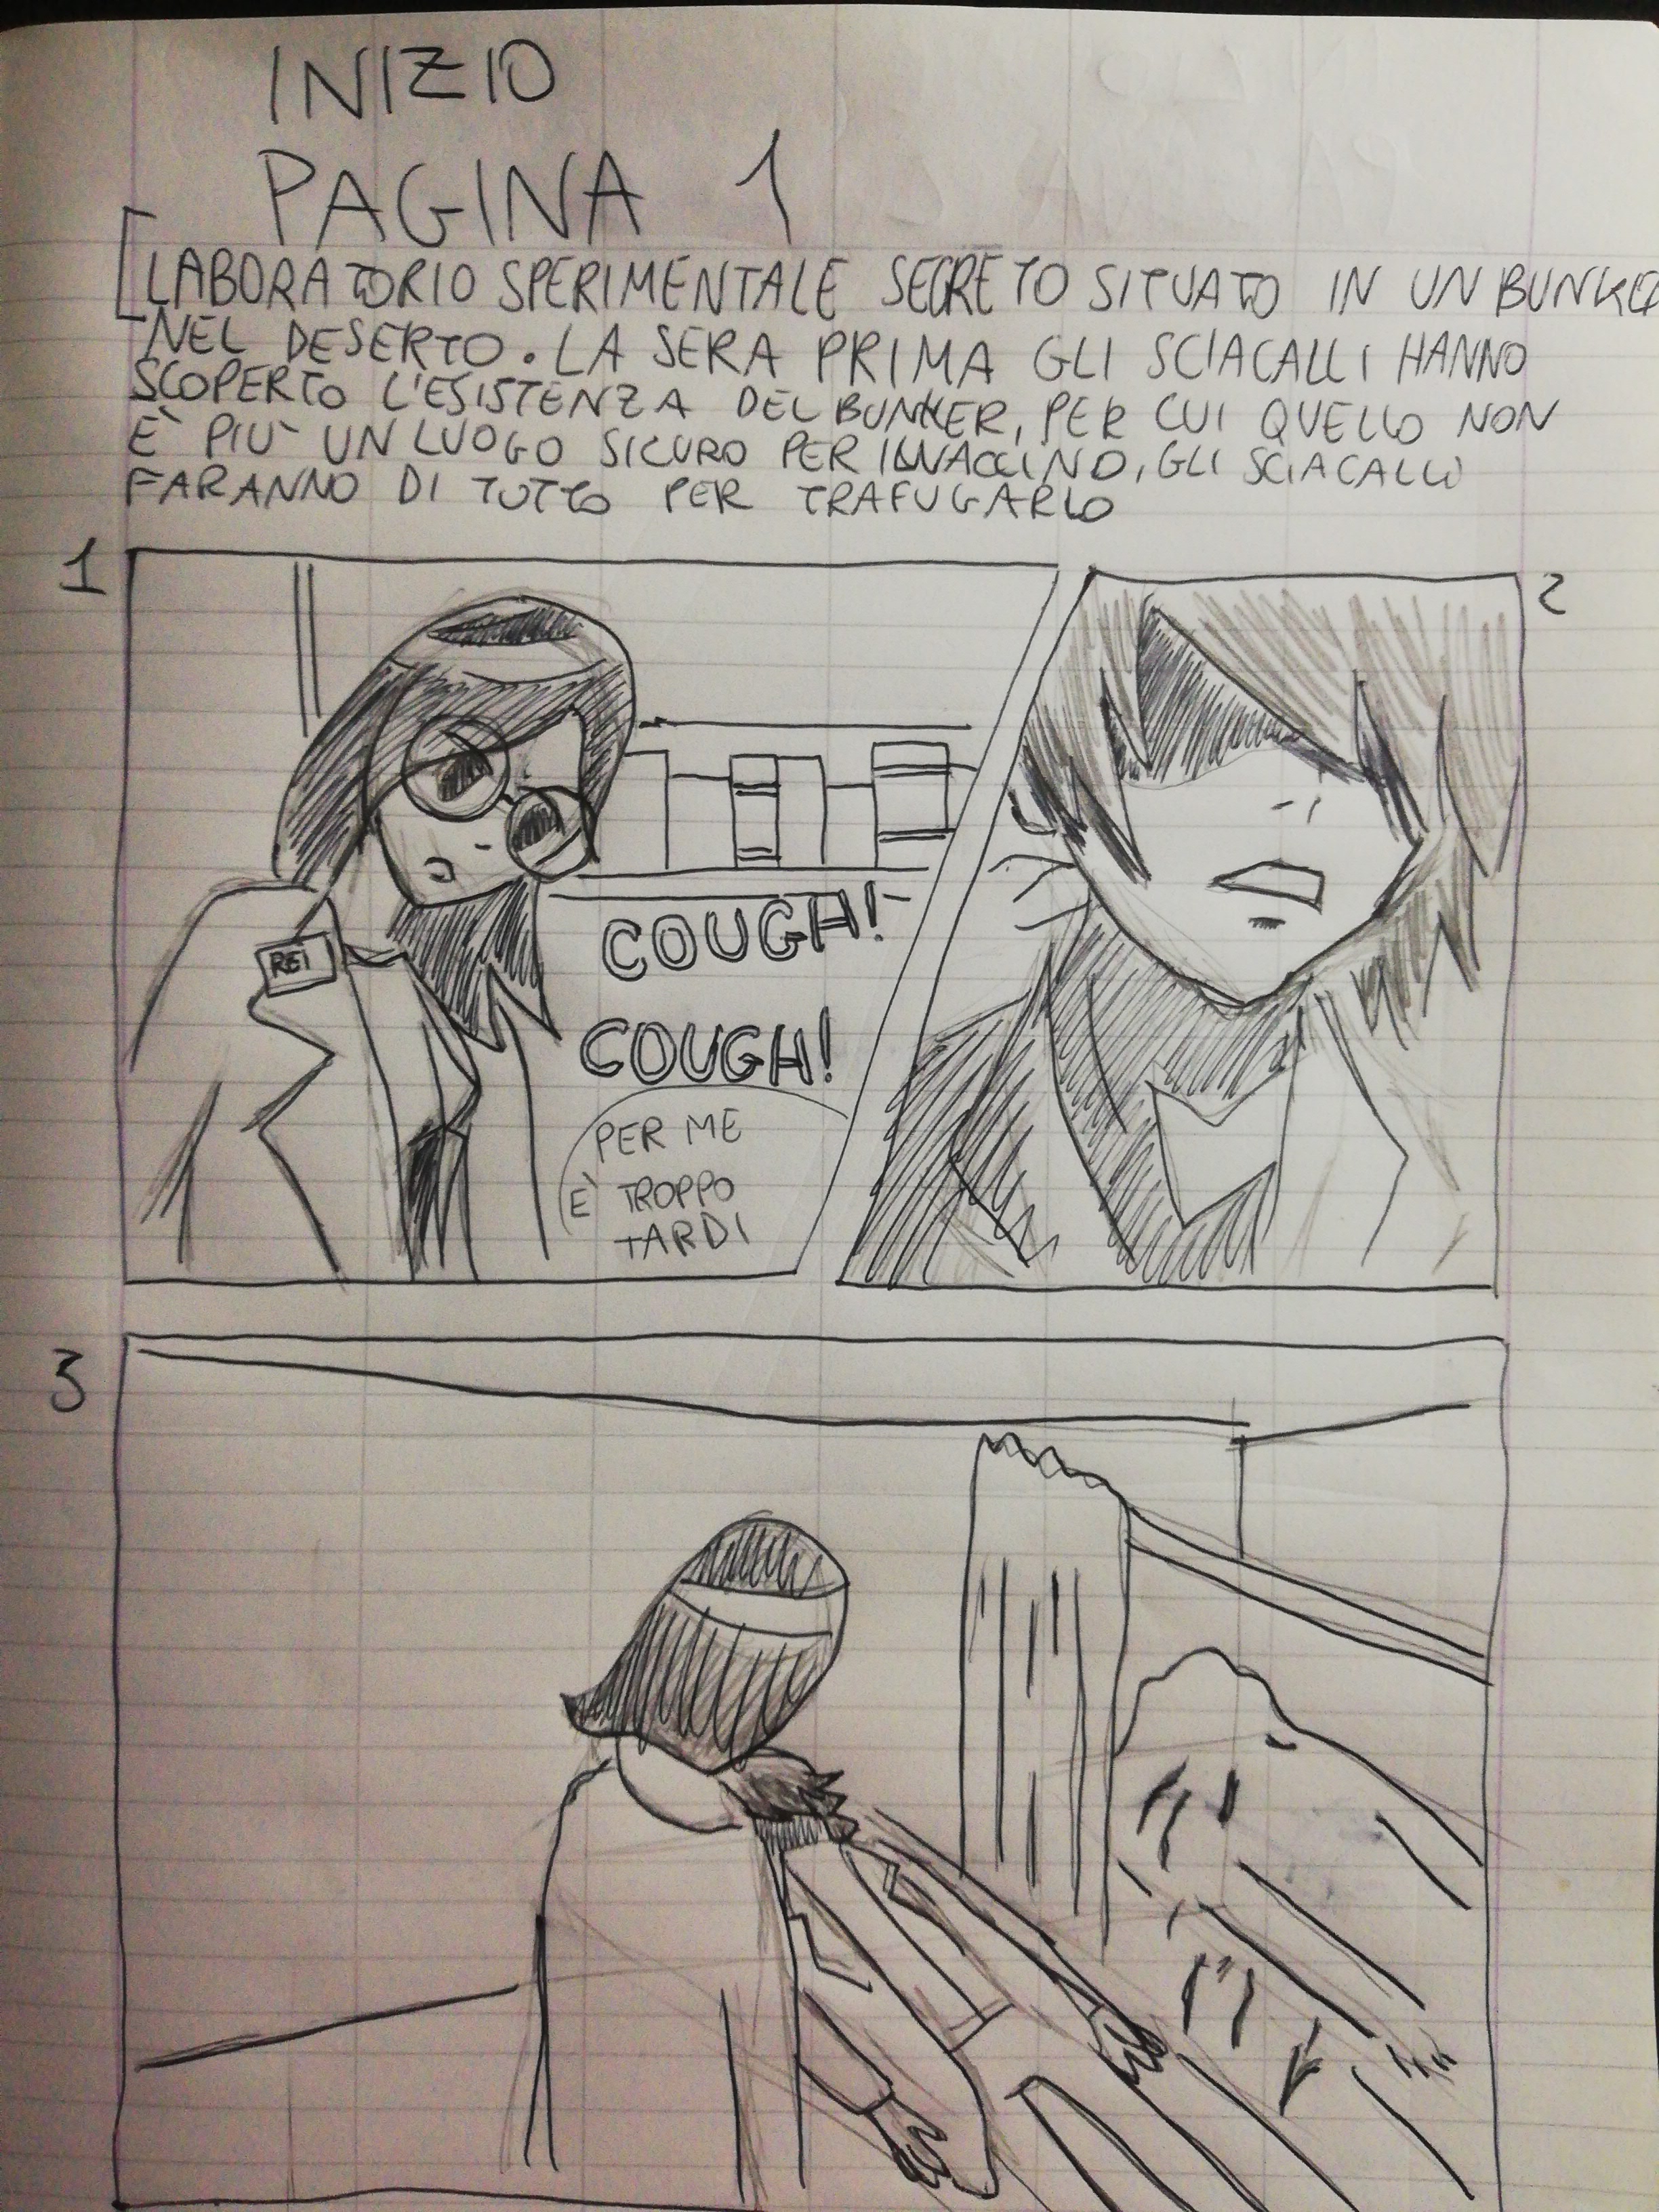 INIZIO
PAGINA 1
LABORATORIO SPERIMENTALE SEGRETO SITUATO IN UN BUNKER
NEL DESERTO. LA SERA PRIMA GLI SCIACALLI HANNO
SCOPERTO L'ESISTENZA DEL BUNKER, PER CUI QUELLO NON
È PIÙ UN LUOGO SICURO PER IL VACCINO, GLI SCIACALLI
FARANNO DI TUTTO PER TRAFUGARLO
1
2
REI
COUGH!
COUGH!
PER ME
È TROPPO
TARDI
3